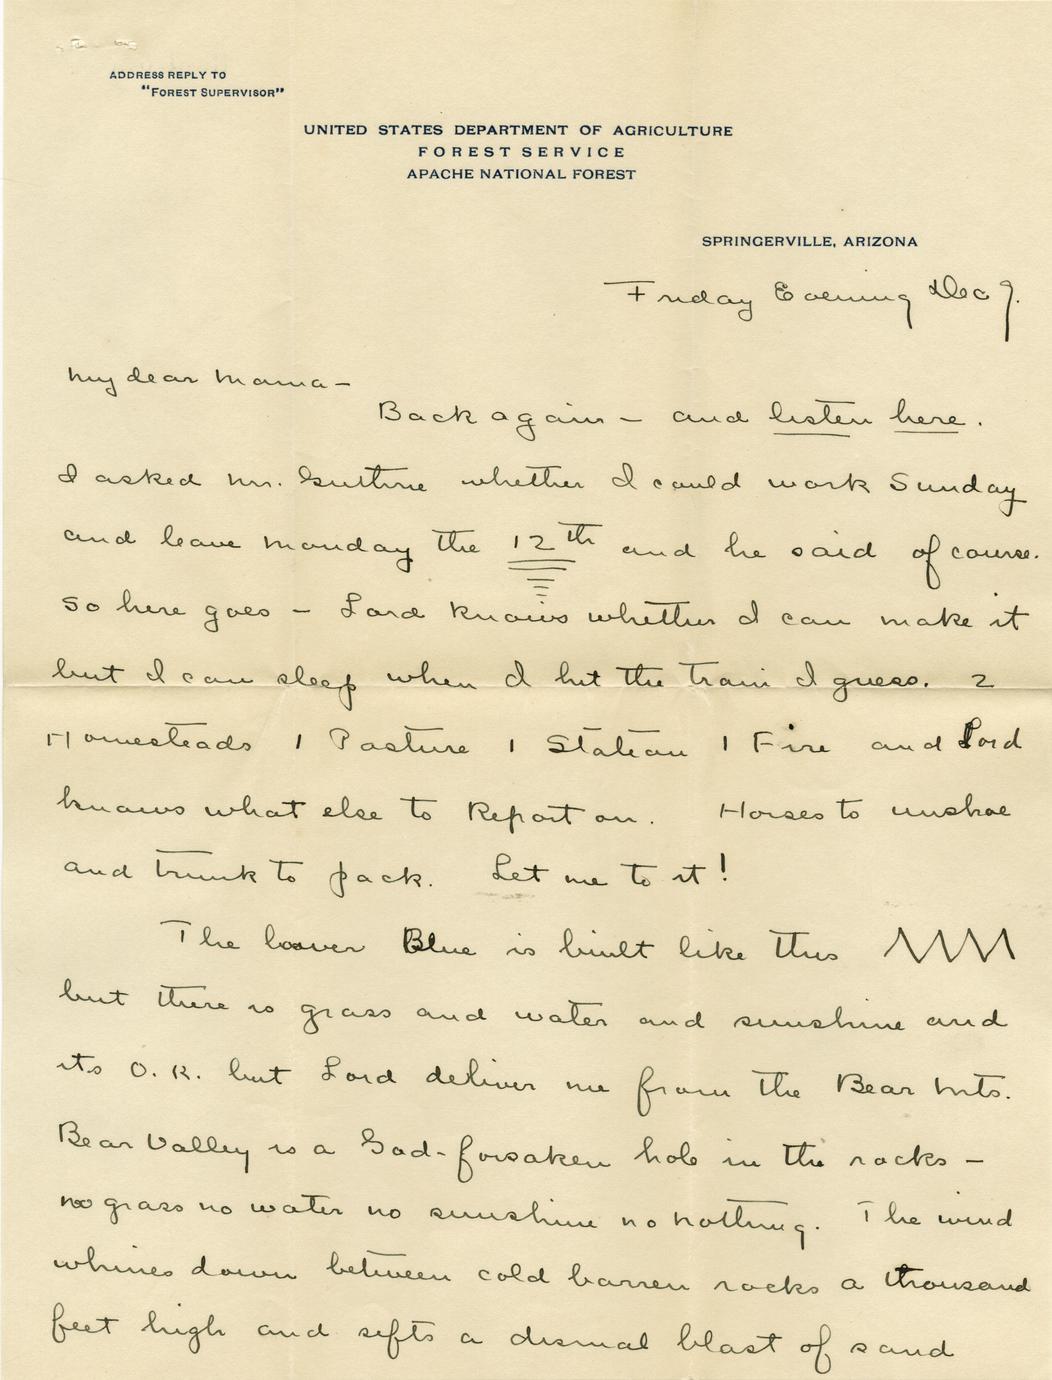 ADDRESS REPLY TO
"FOREST SUPERVISOR"
UNITED STATES DEPARTMENT OF AGRICULTURE
FOREST SERVICE
APACHE NATIONAL FOREST
SPRINGERVILLE, ARIZONA
Friday Evening Dec 9.
My dear Mama—
Back again — and listen here.
I asked Mr. Guthrie whether I could work Sunday
and leave Monday the 12th and he said of course.
So here goes — Lord knows whether I can make it
but I can sleep when I hit the train I guess. 2
Homesteads 1 Pasture 1 Station 1 Fire and Lord
knows what else to Report on. Horses to unshoe
and trunk to pack. Let me to it!
The lower Blue is built like this
but there is grass and water and sunshine and
its O.K. but Lord deliver me from the Bear Mts.
Bear Valley is a God-forsaken hole in the rocks —
no grass no water no sunshine no nothing. The wind
whines down between cold barren rocks a thousand
feet high and sifts a dismal blast of sand